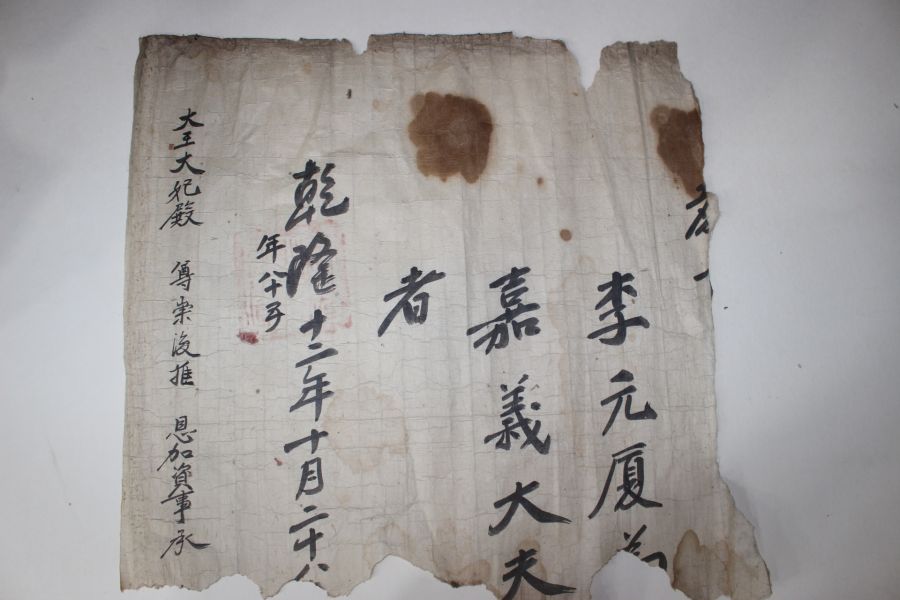 李元厦
嘉義大夫
者
乾隆十二年十月二十
年八十
大王大妃殿 尊崇後推 恩加資事承